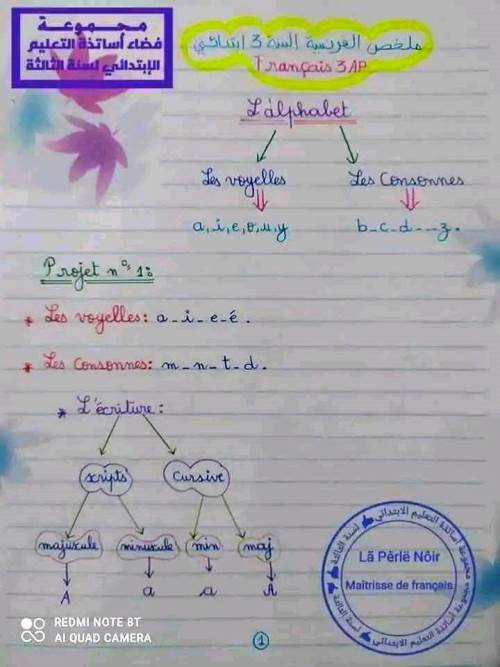 مجموعة
فضاء أساتذة التعليم
الإبتدائي لسنة الثالثة
ملخص الفرنسية السنة 3 ابتدائي
Français 3AP
L'alphabet
Les voyelles Les Consonnes
a, i, e, o, u, y b_c_d_ _ _z.
Projet n° 1:
* Les voyelles: a_i_e_é.
* Les Consonnes: m_n_t_d.
* L'écriture:
scripts cursive
majuscule minuscule min maj
A a a A
مجموعة أساتذة التعليم الابتدائي لسنة الثالثة
Lã Përlë Nôir
Maîtrisse de français
مجموعة أساتذة التعليم الابتدائي لسنة الثالثة
REDMI NOTE 8T
AI QUAD CAMERA
1